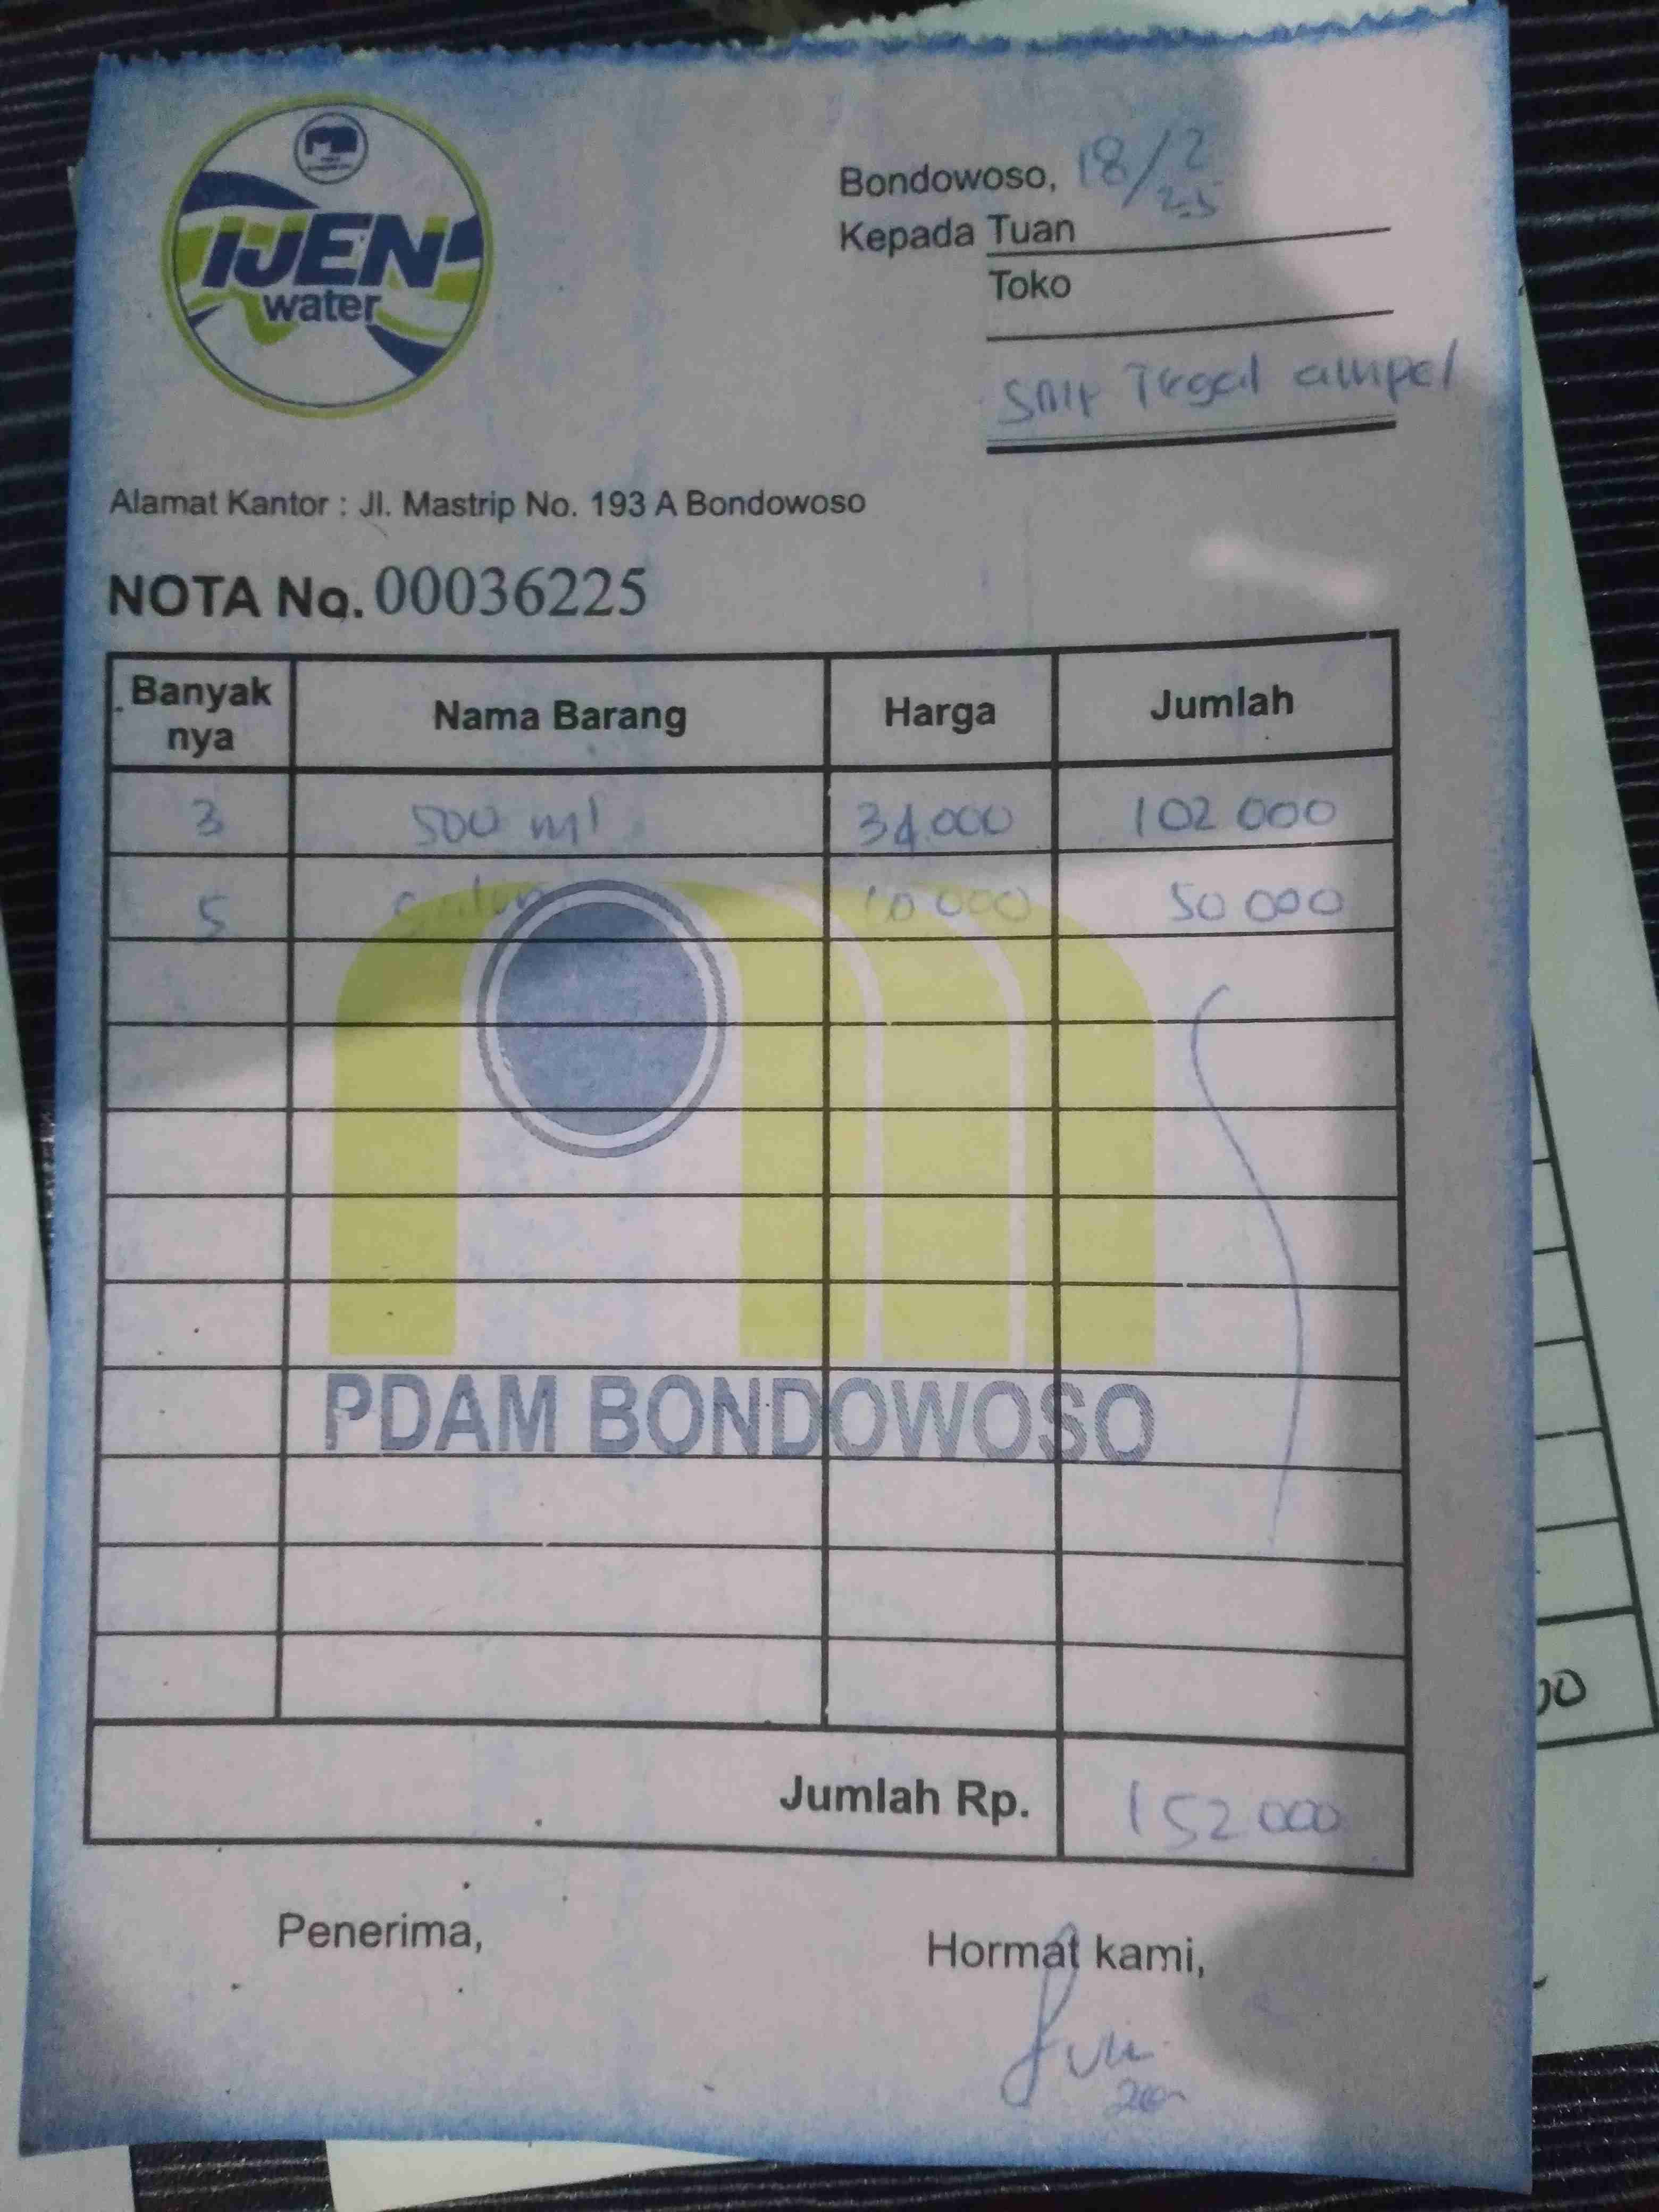 IJEN
water
Bondowoso, 18/2
25
Kepada Tuan
Toko
Tegal ampel
Alamat Kantor : Jl. Mastrip No. 193 A Bondowoso
NOTA No. 00036225
Banyak nya Nama Barang Harga Jumlah
3 500 ml 34.000 102 000
5 galon 10 000 50 000
PDAM BONDOWOSO
Jumlah Rp. 152 000
Penerima, Hormat kami,